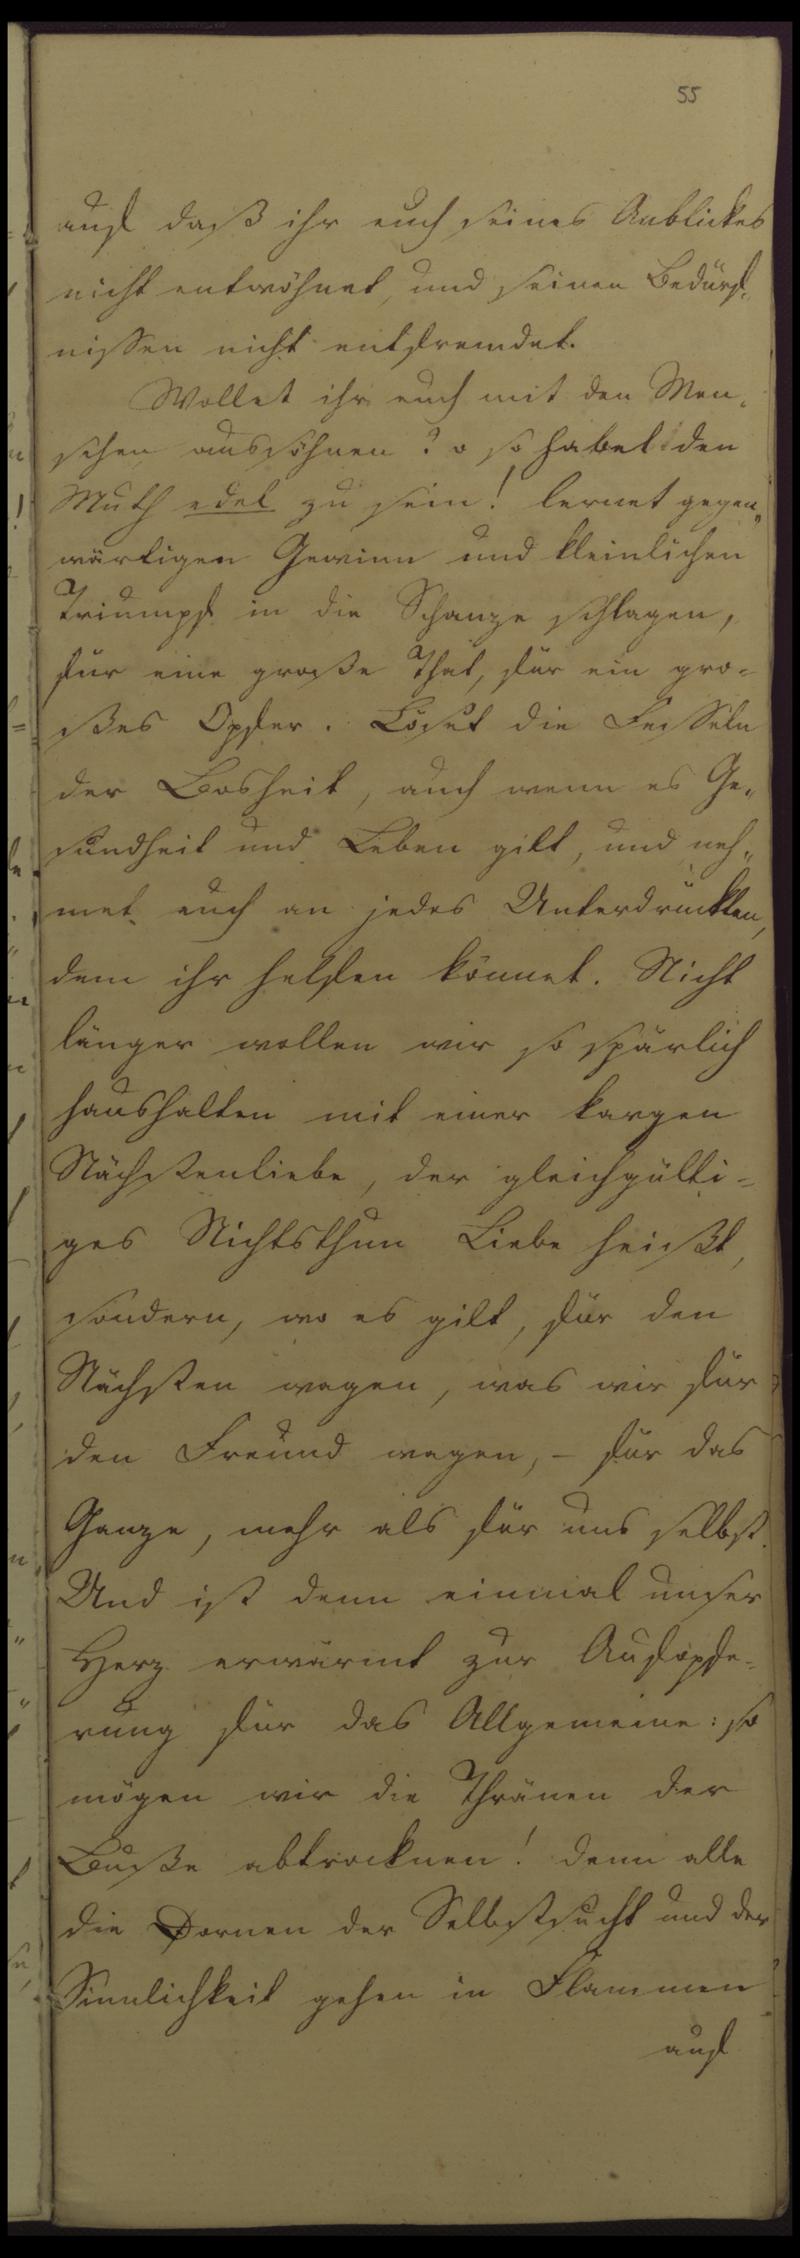 55
auf daß ihr euch seines Anblickes
nicht entwöhnet, und seinen Bedürf-
nissen nicht entfremdet.
Wollet ihr euch mit den Men-
schen aussöhnen? o so habet den
Muth edel zu sein! lernet gegen-
wärtigen Gewinn und kleinlichen
Triumpf in die Schanze schlagen,
für eine große That, für ein gro-
ßes Opfer. Löset die Fesseln
der Bosheit, auch wenn es Ge-
sundheit und Leben gilt, und neh-
met euch an jedes Unterdrückten,
dem ihr helfen könnet. Nicht
länger wollen wir so spärlich
haushalten mit einer kargen
Nächstenliebe, der gleichgülti-
ges Nichtsthun Liebe heißt,
sondern, wo es gilt, für den
Nächsten wagen, was wir für
den Freund wagen, – für das
Ganze, mehr als für uns selbst.
Und ist denn einmal unser
Herz erwärmt zur Aufopfe-
rung für das Allgemeine: so
mögen wir die Thränen der
Buße abtrocknen! denn alle
die Dornen der Selbstsucht und der
Sinnlichkeit gehen in Flammen
auf